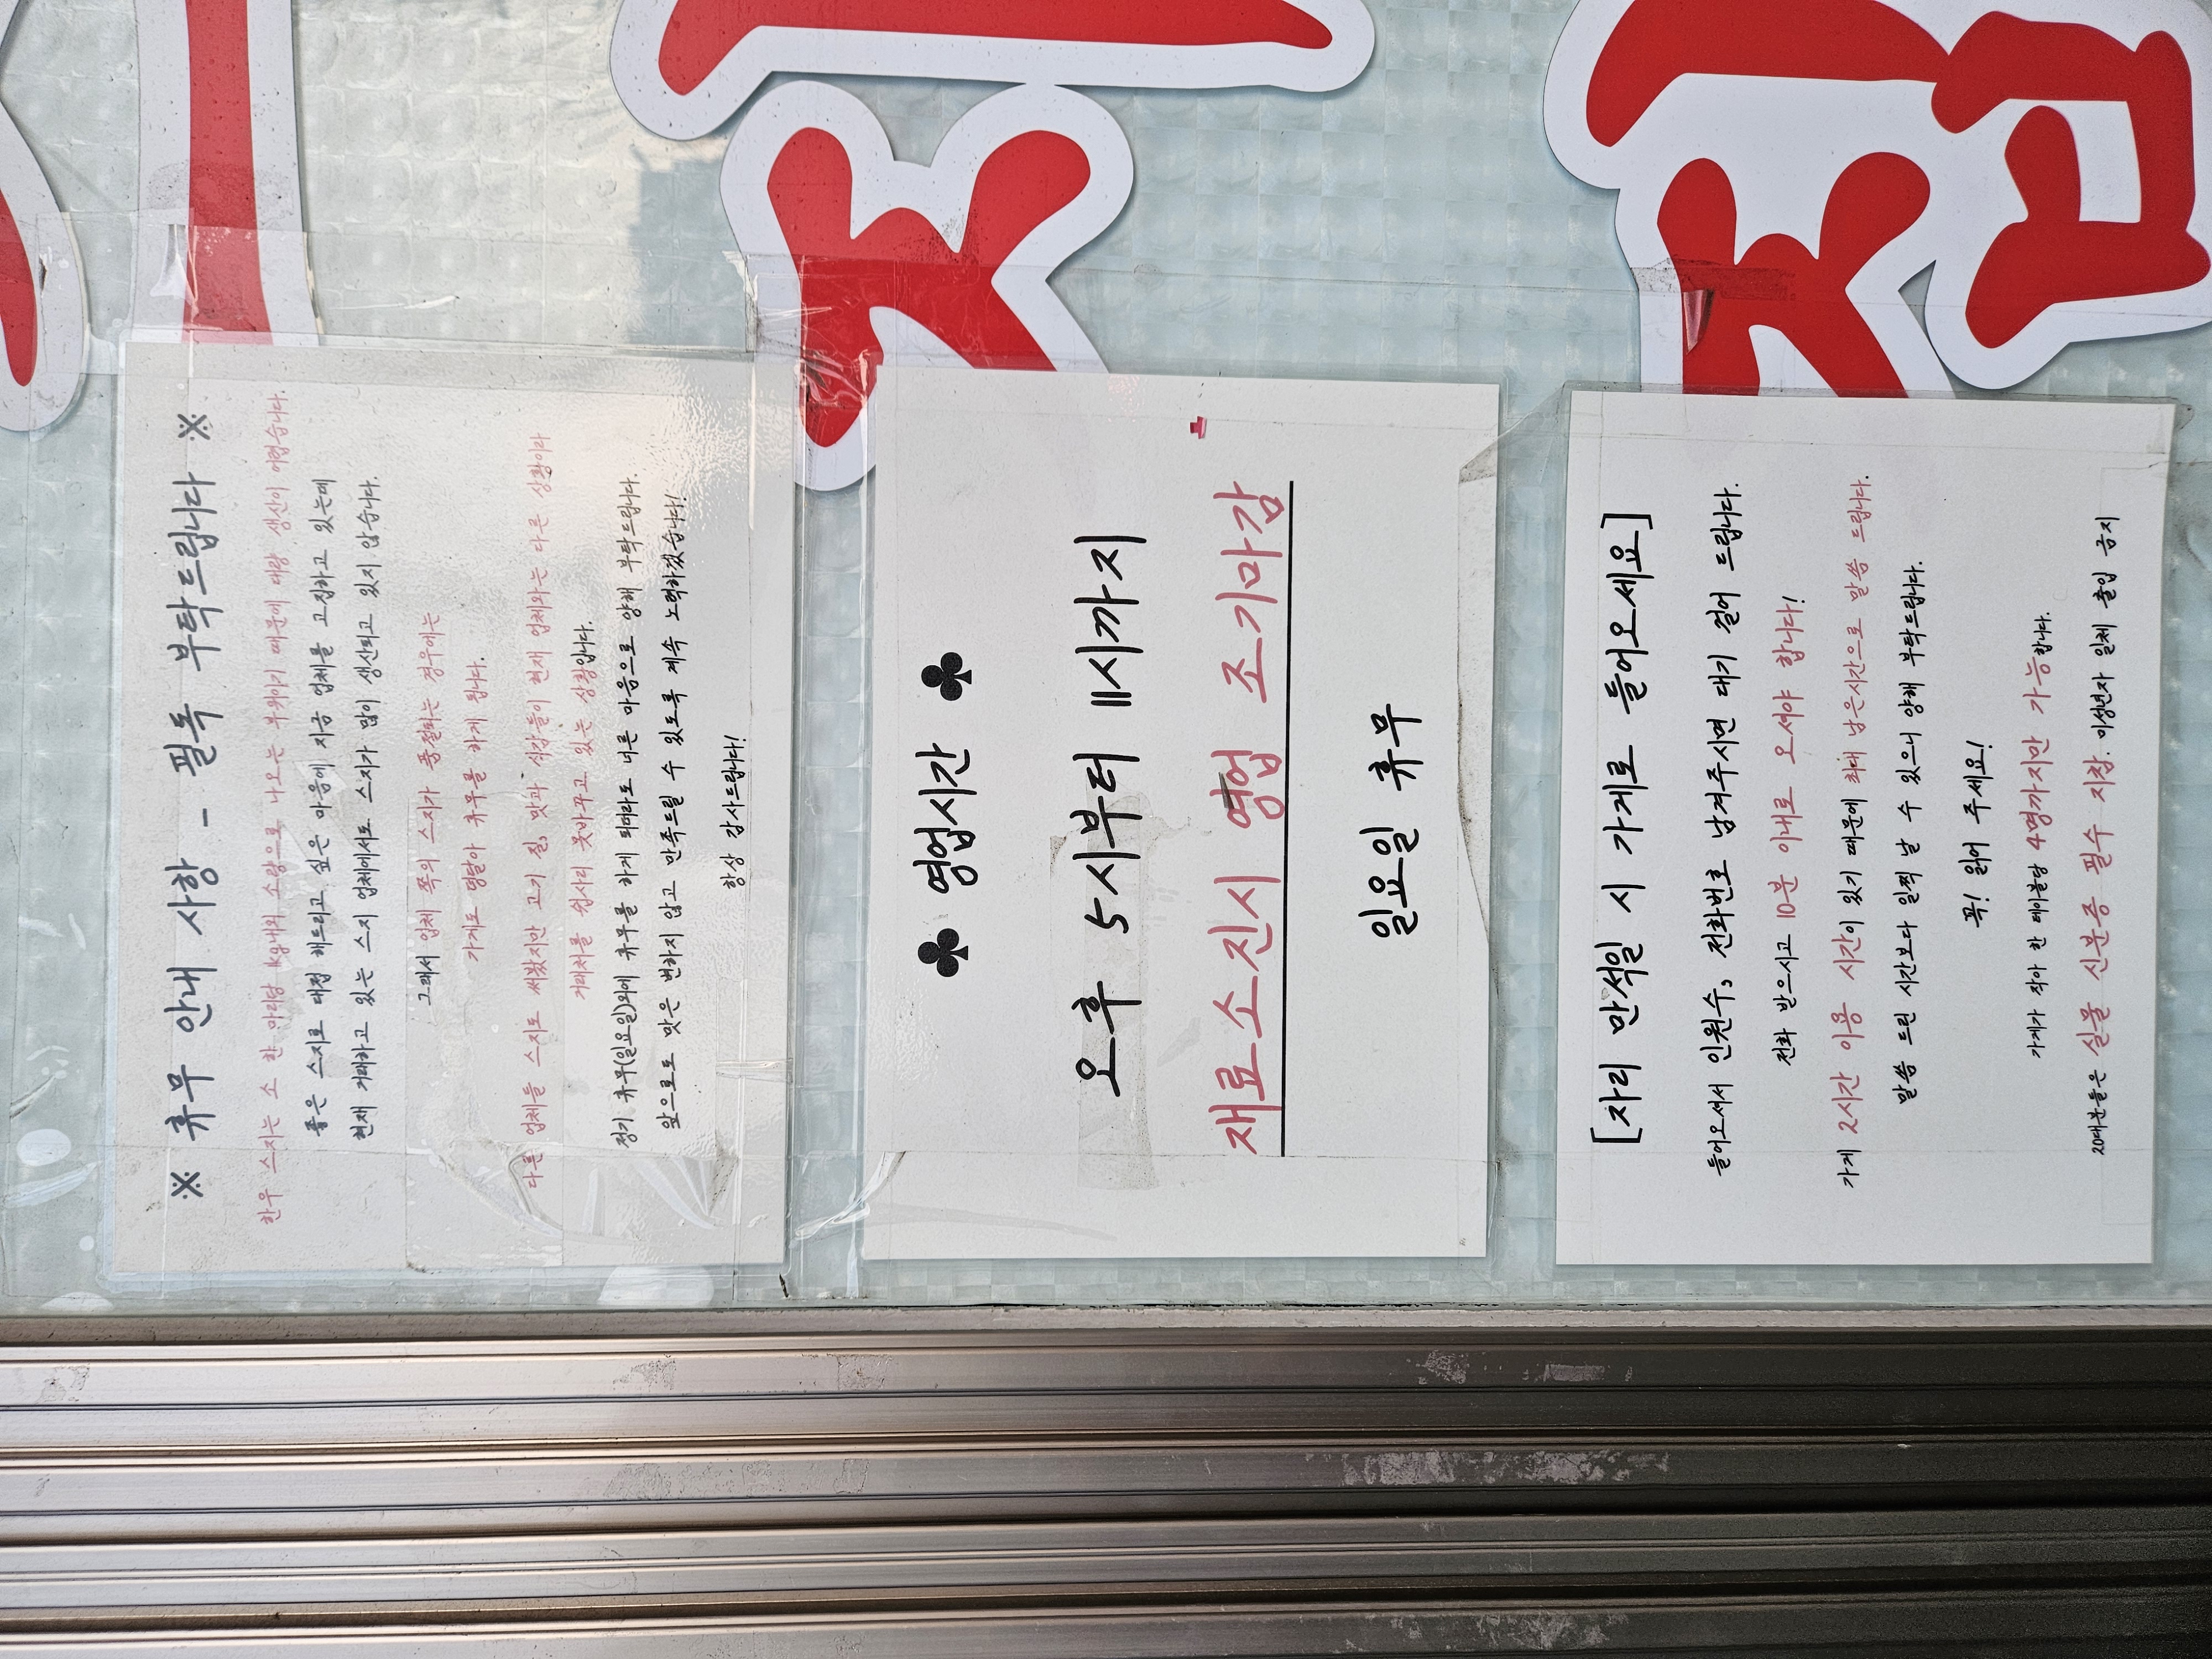 ※ 휴무 안내 사항 - 필독 부탁드립니다 ※
한우 스지는 소 한 마리당 1kg내외 소량으로 나오는 부위이기 때문에 대량 생산이 어렵습니다.
좋은 스지로 대접 해드리고 싶은 마음에 지금 업체를 고집하고 있는데
현재 거래하고 있는 스지 업체에서도 스지가 많이 생산되고 있지 않습니다.
그래서 업체 쪽의 스지가 품절되는 경우에는
가게도 덩달아 휴무를 하게 됩니다.
다른 업체들 스지도 써봤지만 고기 질, 맛과 식감들이 현재 업체와는 다른 상황이라
거래처를 쉽사리 못바꾸고 있는 상황입니다.
정기 휴무(일요일)외에 휴무를 하게 되더라도 너른 마음으로 양해 부탁드립니다.
앞으로도 맛은 변하지 않고 만족드릴 수 있도록 계속 노력하겠습니다!
항상 감사드립니다!
♣ 영업시간 ♣
오후 5시부터 11시까지
재료소진시 영업 조기마감
일요일 휴무
[자리 만석일 시 가게로 들어오세요]
들어오셔서 인원수, 전화번호 남겨주시면 대기 걸어 드립니다.
전화 받으시고 10분 이내로 오셔야 합니다!
가게 2시간 이용 시간이 있기 때문에 최대 남은시간으로 말씀 드립니다.
말씀 드린 시간보다 일찍 날 수 있으니 양해 부탁드립니다.
꼭! 읽어 주세요!
가게가 작아 한 테이블당 4명까지만 가능합니다.
20대분들은 실물 신분증 필수 지참. 미성년자 일체 출입 금지